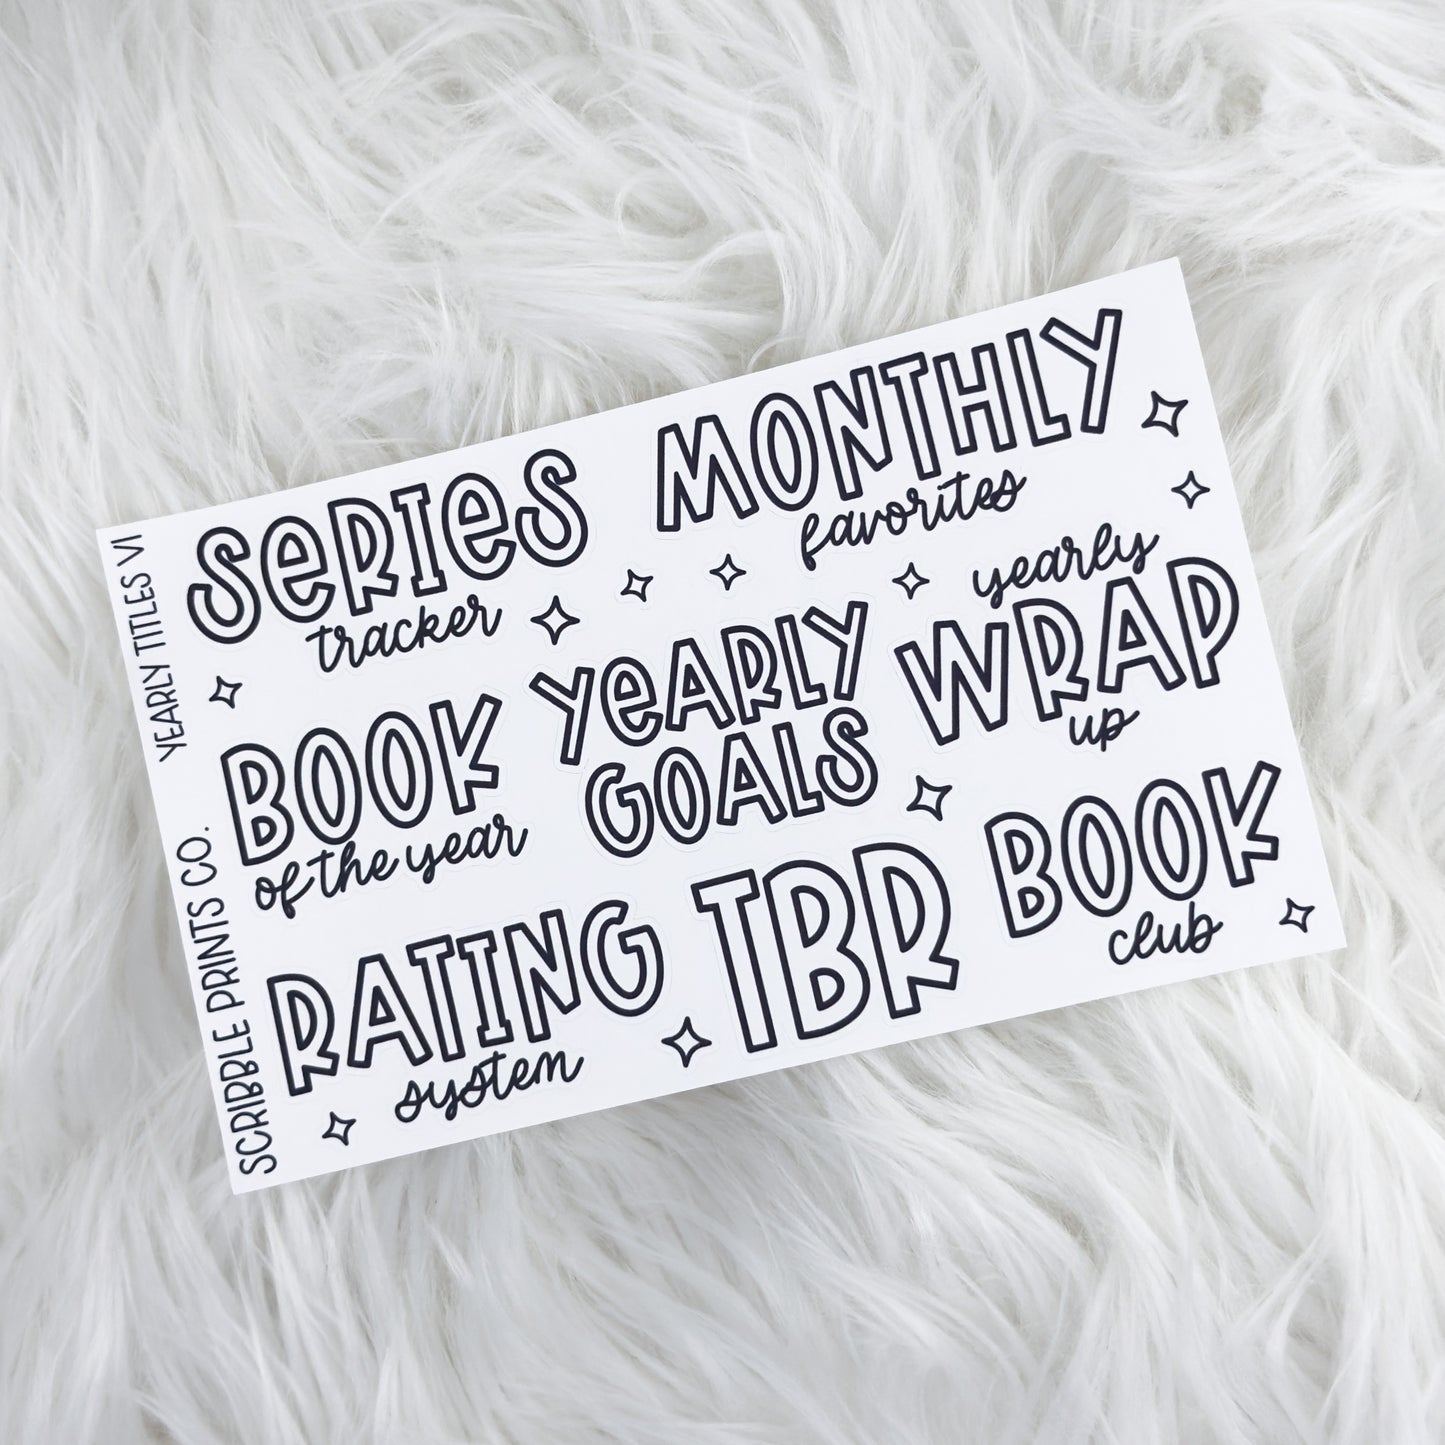 YEARLY TITLES VI
SCRIBBLE PRINTS CO.
SERIES
tracker
MONTHLY
favorites
BOOK
of the year
YEARLY
GOALS
yearly
WRAP
up
RATING
system
TBR
BOOK
club